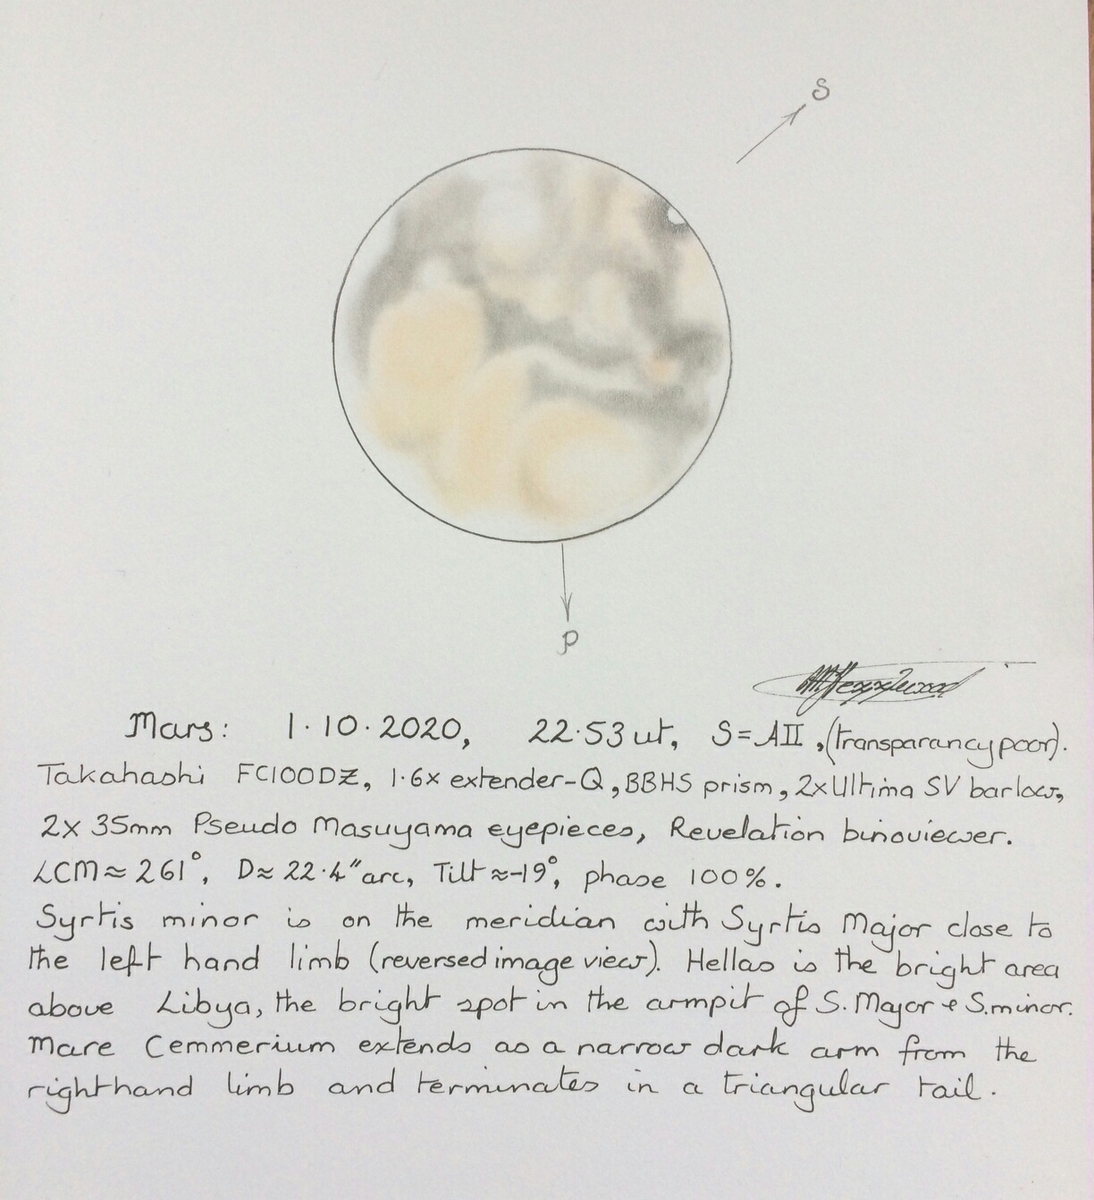 S
P
Mars: 1·10·2020, 22·53ut, S=AII, (transparancy poor).
Takahashi FC100DZ, 1·6x extender-Q, BBHS prism, 2x Ultima SV barlow,
2x 35mm Pseudo Masuyama eyepieces, Revelation binoviewer.
LCM≈261°, D≈22·4"arc, Tilt≈-19°, phase 100%.
Syrtis minor is on the meridian with Syrtis Major close to
the left hand limb (reversed image view). Hellas is the bright area
above Libya, the bright spot in the armpit of S. Major & S. minor.
Mare Cemmerium extends as a narrow dark arm from the
righthand limb and terminates in a triangular tail.